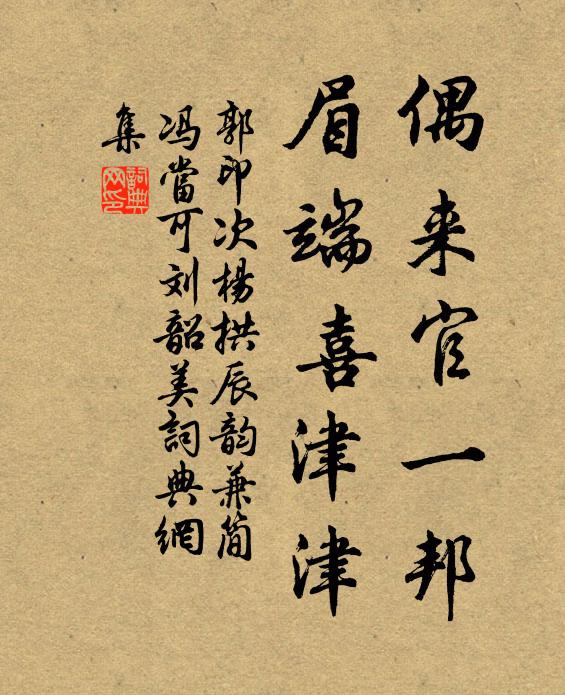 偶来官一邦
眉端喜津津
郭印次楊拱辰韵兼简
冯當可刘韶美詞典網
集
詞典
网印